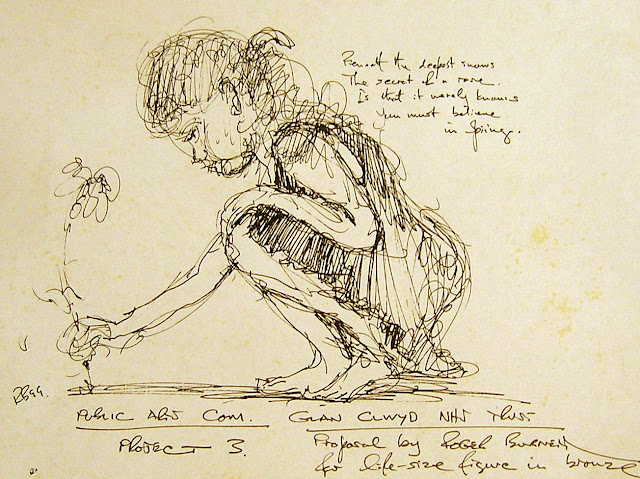 Beneath the deepest snows
The secret of a rose
Is that it merely knows
You must believe
in Spring.
RB99.
PUBLIC ART COM. GLAN CLWYD NHS TRUST
PROJECT 3. Proposal by ROGER BURNETT
for life-size figure in bronze